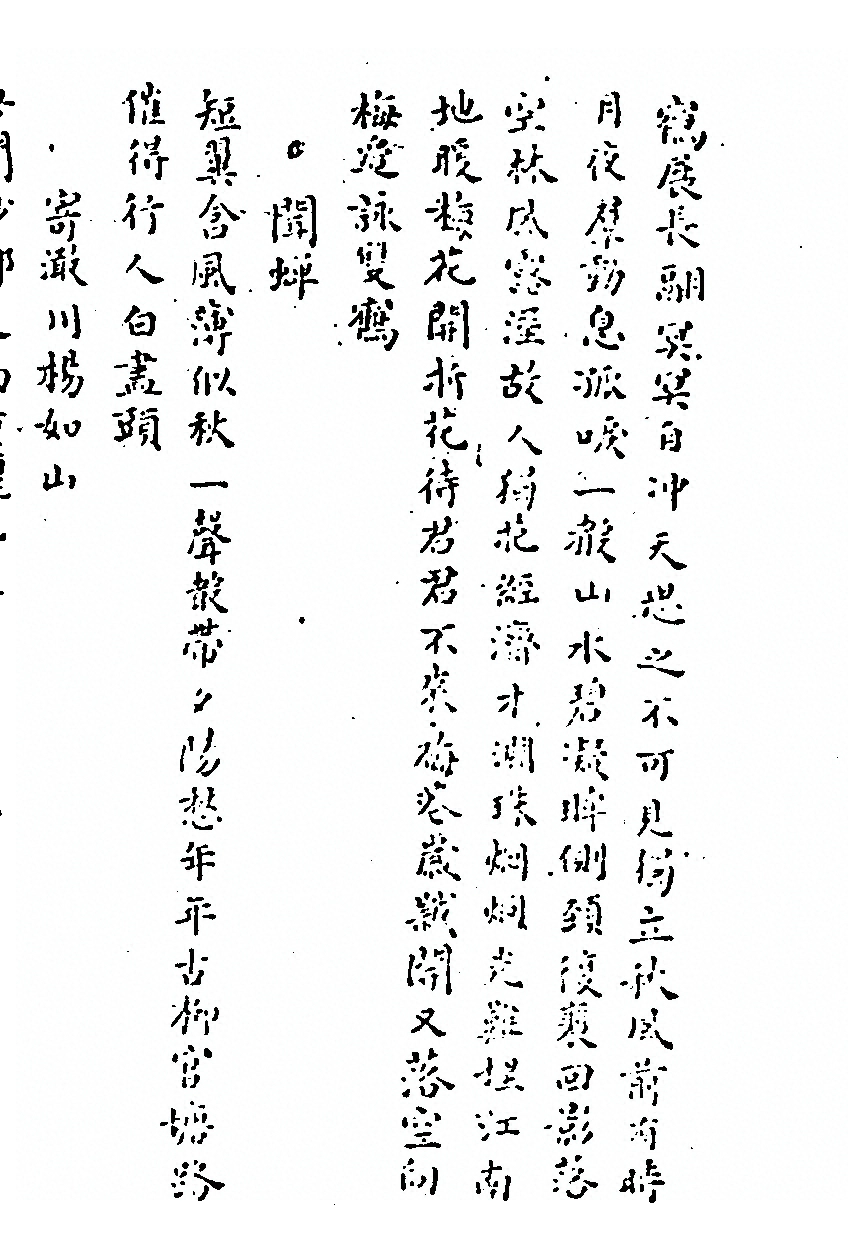 鶴展長翮冥冥自冲天思之不可見獨立秋風前有時
月夜羣動息孤唳一聲山水碧凝眸側頸復裵回影落
空林風露溼故人獨抱經濟才淵珠炯炯光難埋江南
地暖梅花開折花待君君不來梅花歲歲開又落空向
梅邊詠雙鶴
聞蟬
短翼含風薄似秋一聲散帶夕陽愁年年古柳官塘路
催得行人白盡頭
寄澉川楊如山